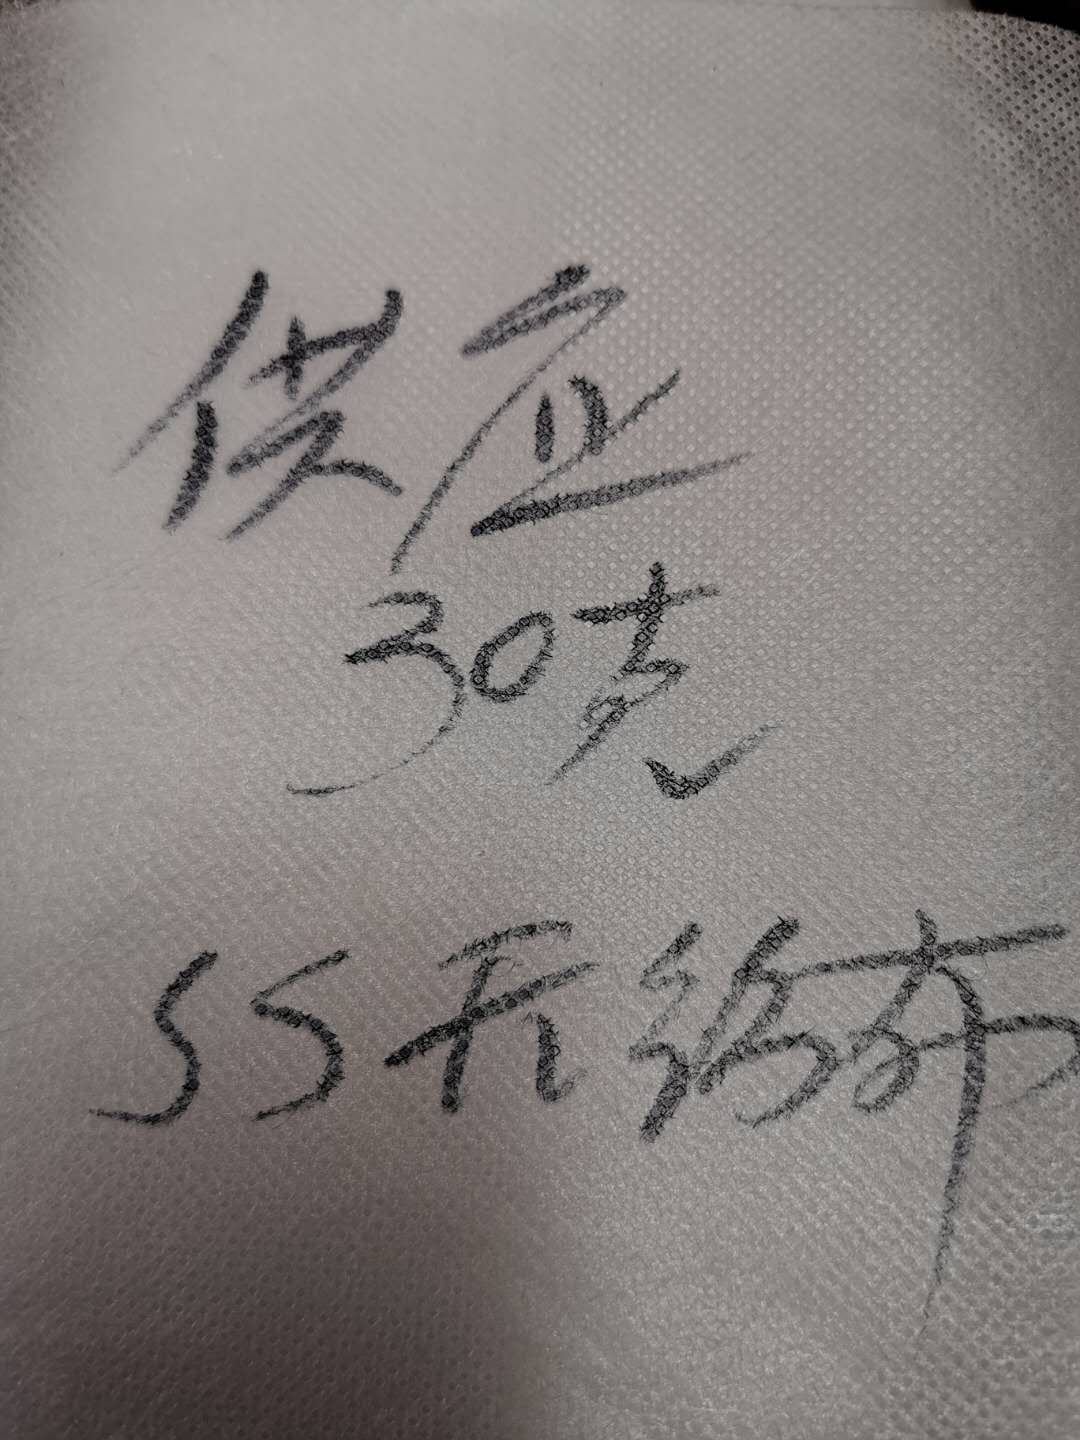 供应
30克
SS无纺布